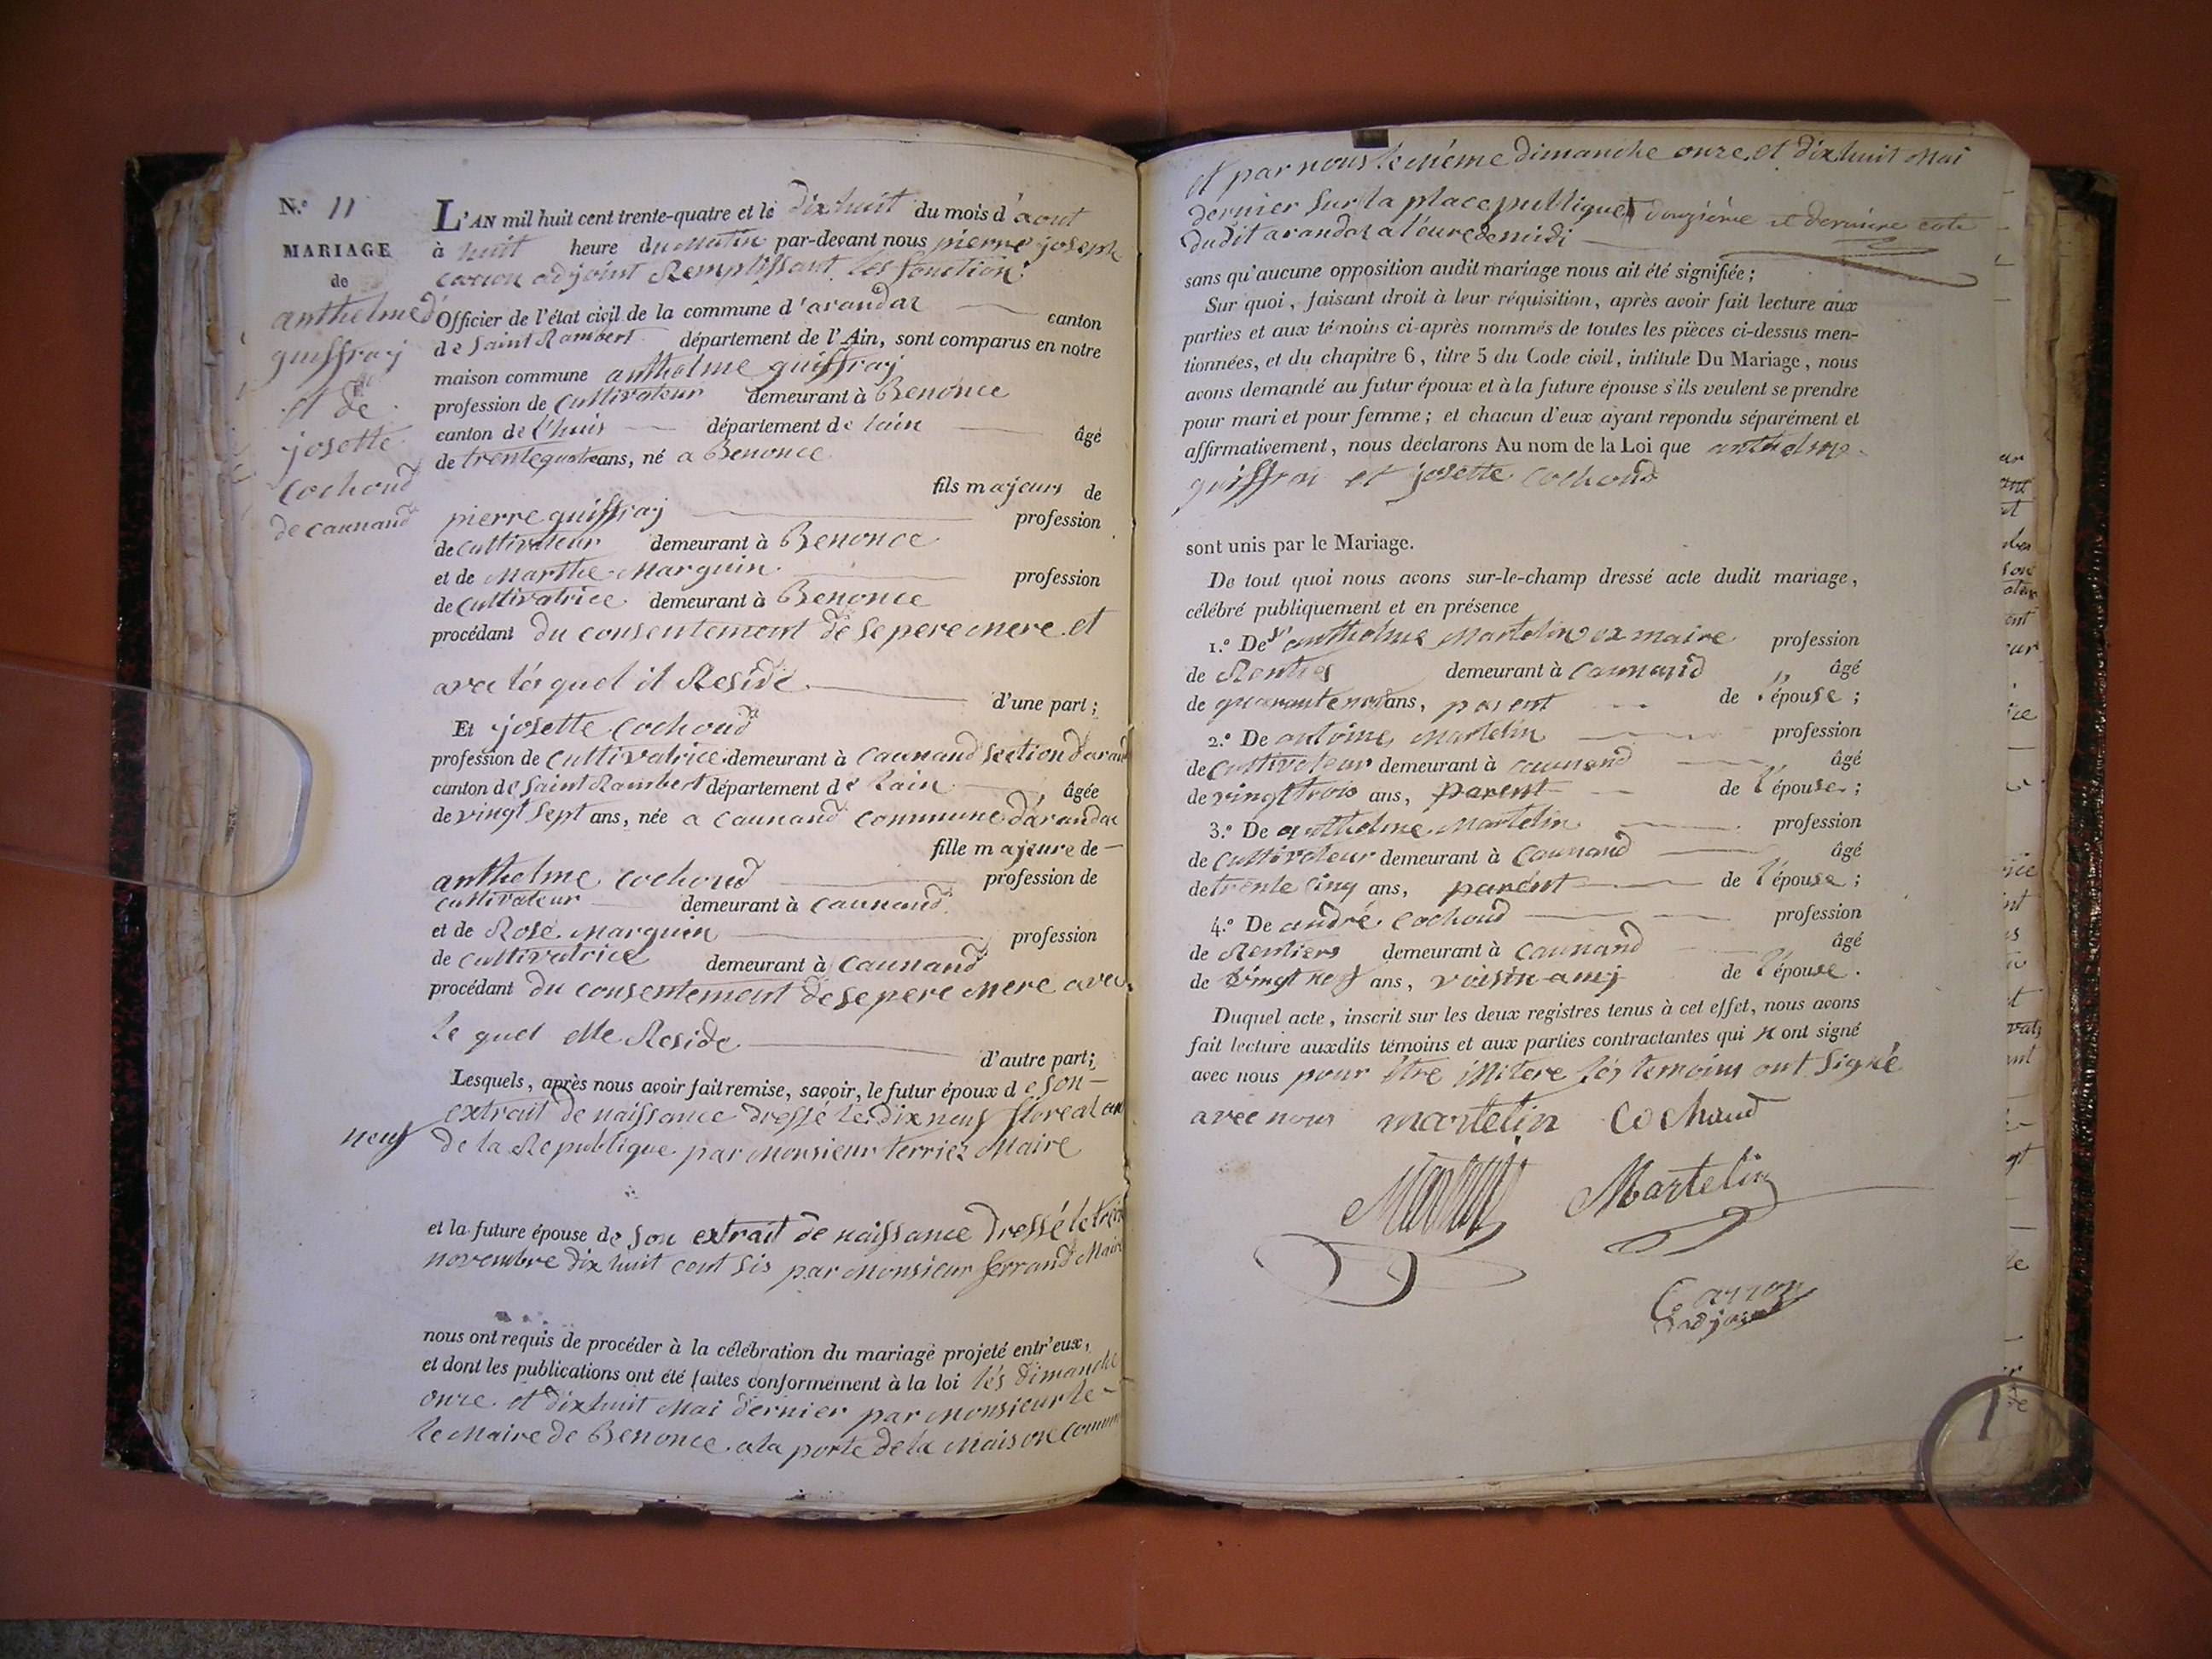 N.º 11
MARIAGE
de
anthelme
guiffray
et de
josette
Cochoud
de Caunand
L'AN mil huit cent trente-quatre et le dixhuit du mois d'aout
à huit heure du Matin par-devant nous pierre joseph
carron adjoint Remplissant les fonction
d'Officier de l'état civil de la commune d'arandaz canton
de Saint Rambert département de l'Ain, sont comparus en notre
maison commune anthelme guiffray
profession de Cultivateur demeurant à Benonce
canton de l'huis département de lain âgé
de trentequatre ans, né a Benonce
fils majeurs de
pierre guiffray profession
de Cultivateur demeurant à Benonce
et de Marthe Marguin profession
de Cultivatrice demeurant à Benonce
procédant du consentement de se pere mere et
avec lés quel il Reside d'une part;
Et josette Cochoud
profession de Cultivatrice demeurant à Caunand Section d'aran
canton de Saint Rambert département de lain âgée
de vingt Sept ans, née a Caunand Commune d'arandaz
fille majeure de
anthelme Cochoud profession de
Cultivateur demeurant à Caunand
et de Rose Marguin profession
de Cultivatrice demeurant à Caunand
procédant du consentement de se pere mere avec
le quel elle Reside d'autre part;
Lesquels, après nous avoir fait remise, savoir, le futur époux de Son
extrait de naissance dressé le dixneuf floreal an
neuf de la Republique par Monsieur terrier Maire
et la future épouse de Son extrait de naissance Dressé le
novembre dix huit cent Sis par Monsieur ferrand Maire
nous ont requis de procéder à la célébration du mariage projeté entr'eux,
et dont les publications ont été faites conformément à la loi lés Dimanche
onze et dixhuit Mai dernier par Monsieur le
le Maire de Benonce a la porte de la Maison Commune
et par nous le Même dimanche onze et dixhuit Mai
dernier Sur la place publique douzième et dernière cote
dudit arandaz a l'éure de midi
sans qu'aucune opposition audit mariage nous ait été signifiée;
Sur quoi, faisant droit à leur réquisition, après avoir fait lecture aux
parties et aux témoins ci-après nommés de toutes les pièces ci-dessus men-
tionnées, et du chapitre 6, titre 5 du Code civil, intitule Du Mariage, nous
avons demandé au futur époux et à la future épouse s'ils veulent se prendre
pour mari et pour femme; et chacun d'eux ayant repondu séparément et
affirmativement, nous déclarons Au nom de la Loi que anthelme
guiffrai et josette Cochoud
sont unis par le Mariage.
De tout quoi nous avons sur-le-champ dressé acte dudit mariage,
célébré publiquement et en présence
1.º De Sr anthelme Martelin ex maire profession
de Rentier demeurant à Caunand âgé
de quarante ans, parent de l'épouse;
2.º De antoine Martelin profession
de Cultivateur demeurant à Caunand âgé
de vingt trois ans, parent de l'épouse;
3.º De anthelme Martelin profession
de Cultivateur demeurant à Caunand âgé
de trente cinq ans, parént de l'épouse;
4.º De andré Cochoud profession
de Rentiers demeurant à Caunand âgé
de vingt neuf ans, voisin amj de l'épouse.
Duquel acte, inscrit sur les deux registres tenus à cet effet, nous avons
fait lecture auxdits témoins et aux parties contractantes qui n ont signé
avec nous pour être ilitere lés temoins ont Signé
avec nous martelin Cochaud
Martelin
Carron
adjoint